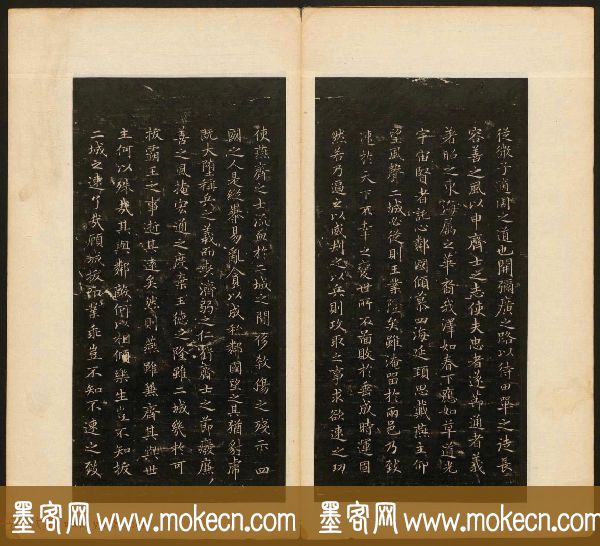 從微子適周之道也開彌廣之路以待田單之徒長
容善之風以申齊士之志使夫忠者遂節通者義
著昭之東海屬之華裔我澤如春下應如草道光
宇宙賢者託心鄰國傾慕四海延頸思戴燕主仰
望風聲二城必從則王業隆矣雖淹留於兩邑乃致
速於天下不幸之變世所不圖敗於垂成時運固
然若乃逼之以威劫之以兵則攻取之事求欲速之功
使燕齊之士流血於二城之間侈殺傷之殘示四
國之人是縱暴易亂貪以成私鄰國望之其猶豺虎
既大墮稱兵之義而喪濟弱之仁虧齊士之節廢廉
善之風掩宏通之度棄王德之隆雖二城幾於可
拔霸王之事逝其遠矣然則燕雖兼齊其與世
主何以殊哉其與鄰敵何以相傾樂生豈不知拔
二城之速了哉顧城拔而業乖豈不知不速之致
墨客网 www.mokecn.com 墨客网 www.mokecn.com